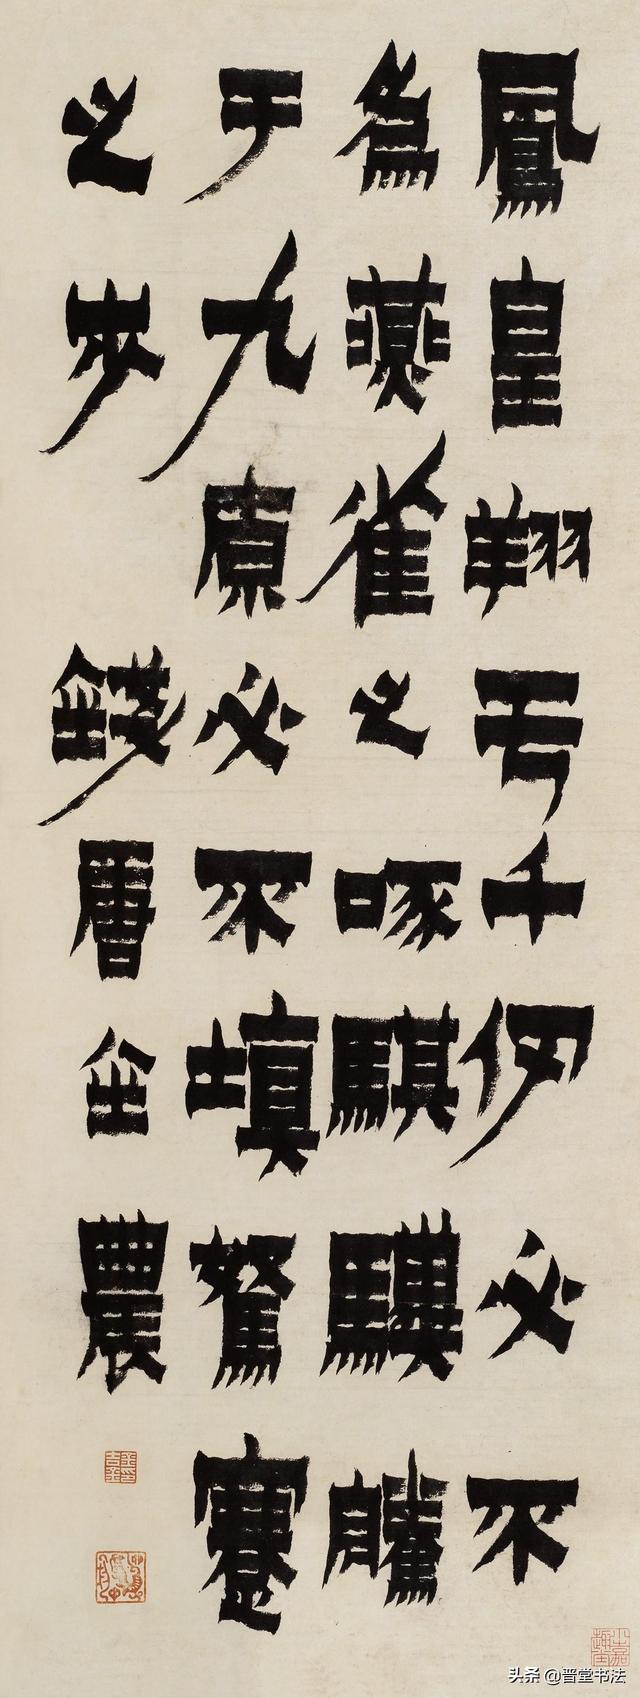 鳳皇翔亏千仞必不
為燕雀之啄騏驥騰
于九原必不填駑蹇
之步
錢唐金農
头条 @晋堂书法